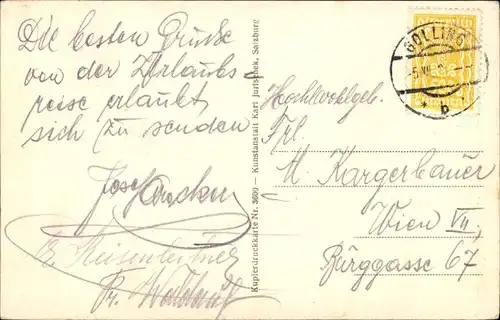 Die besten Grüße
von der Urlaubs-
reise erlaubt
sich zu senden
Josef
Fr.
Kupferdruckkarte Nr. 3600 — Kunstanstalt Karl Jurischek, Salzburg
GOLLING
* b
Hochwohlgeb.
Frl.
M. Kargerbauer
Wien VII.
Burggasse 67